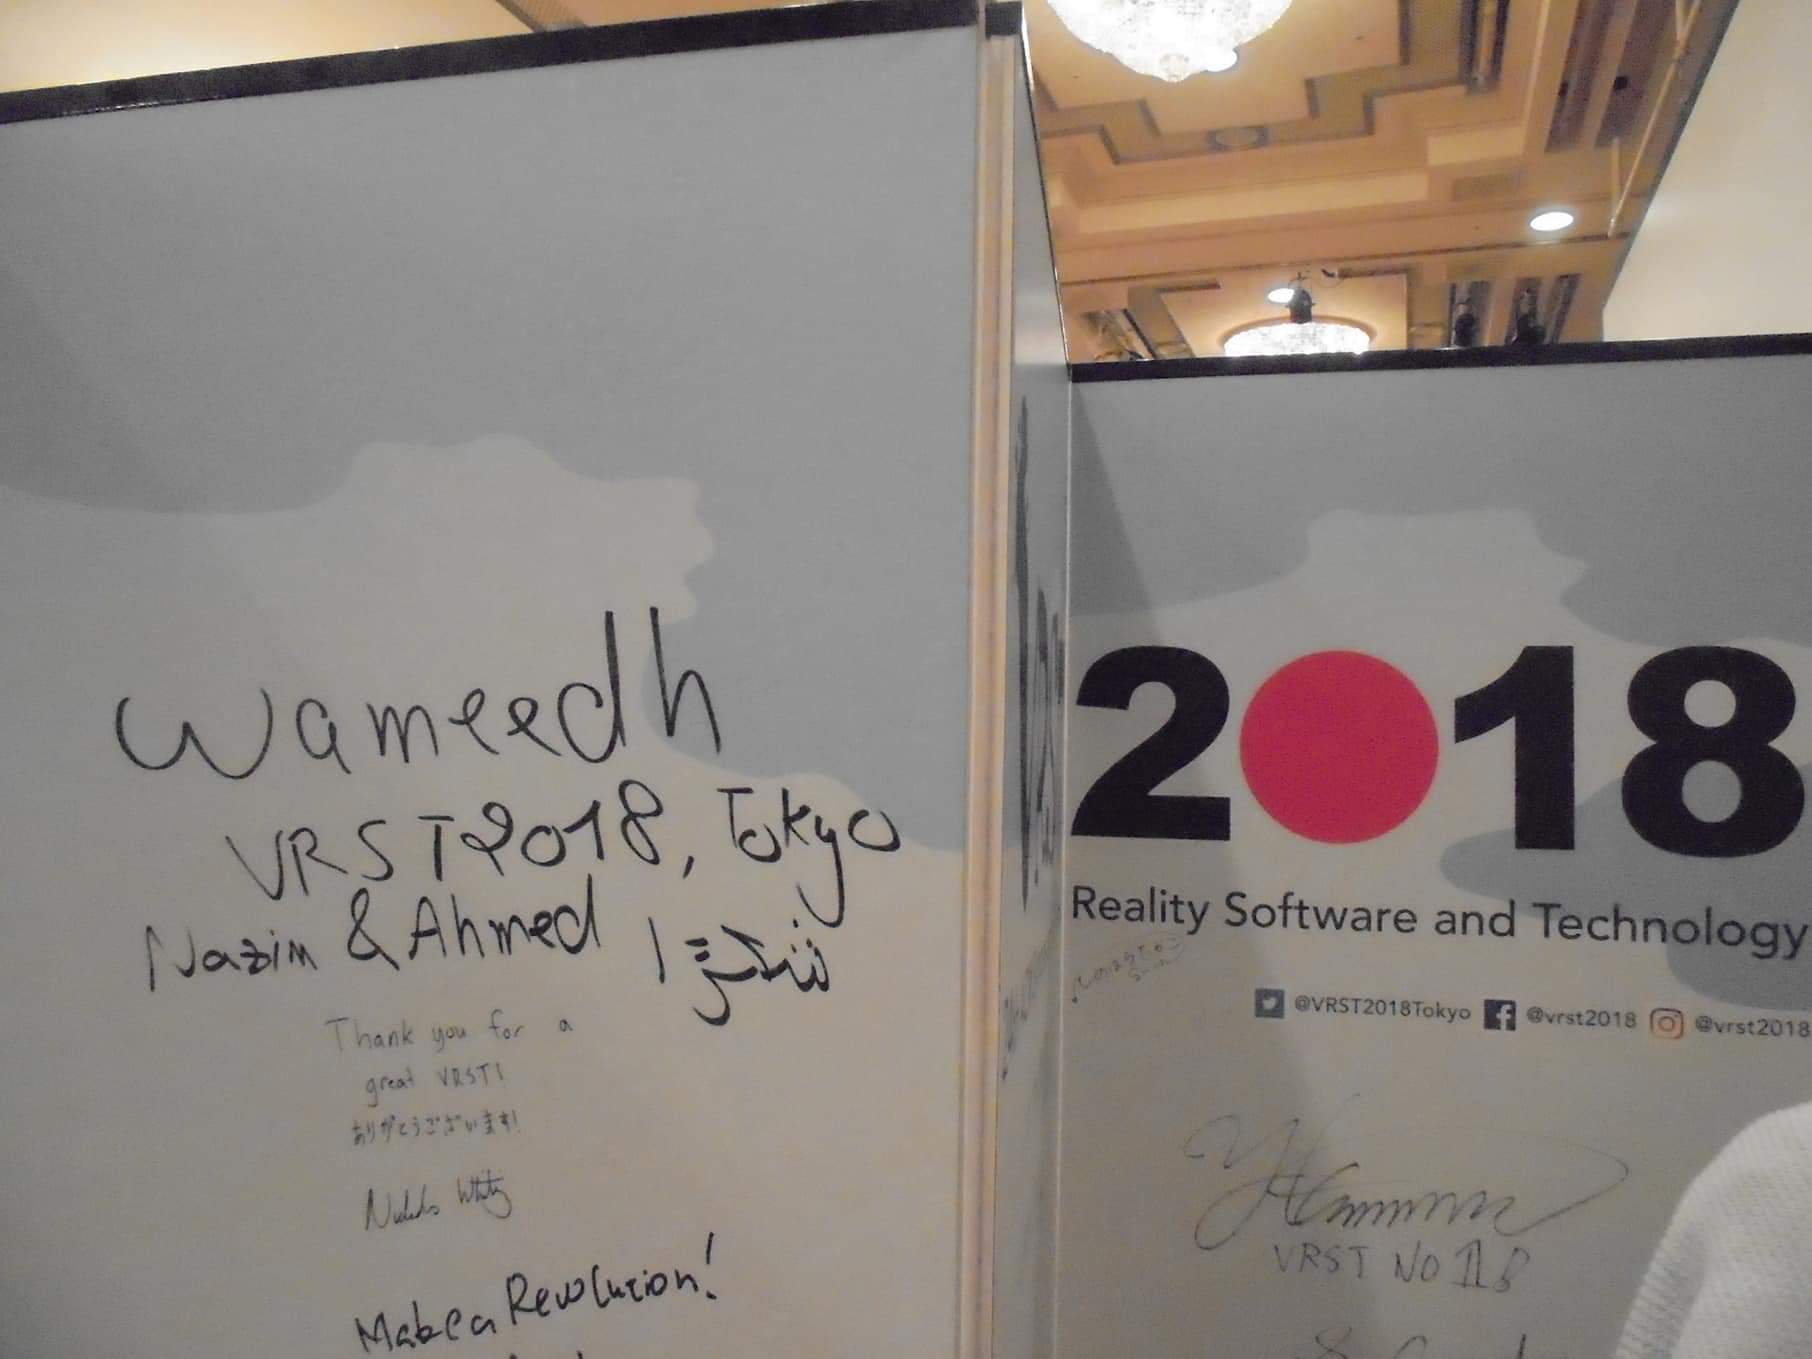 Wameedh
VRST2018, Tokyo
Nazim & Ahmed شكرًا
Thank you for a
great VRST!
ありがとうございます!
Make a Revolution!
2018
Reality Software and Technology
@VRST2018Tokyo @vrst2018 @vrst2018
VRST NO 18